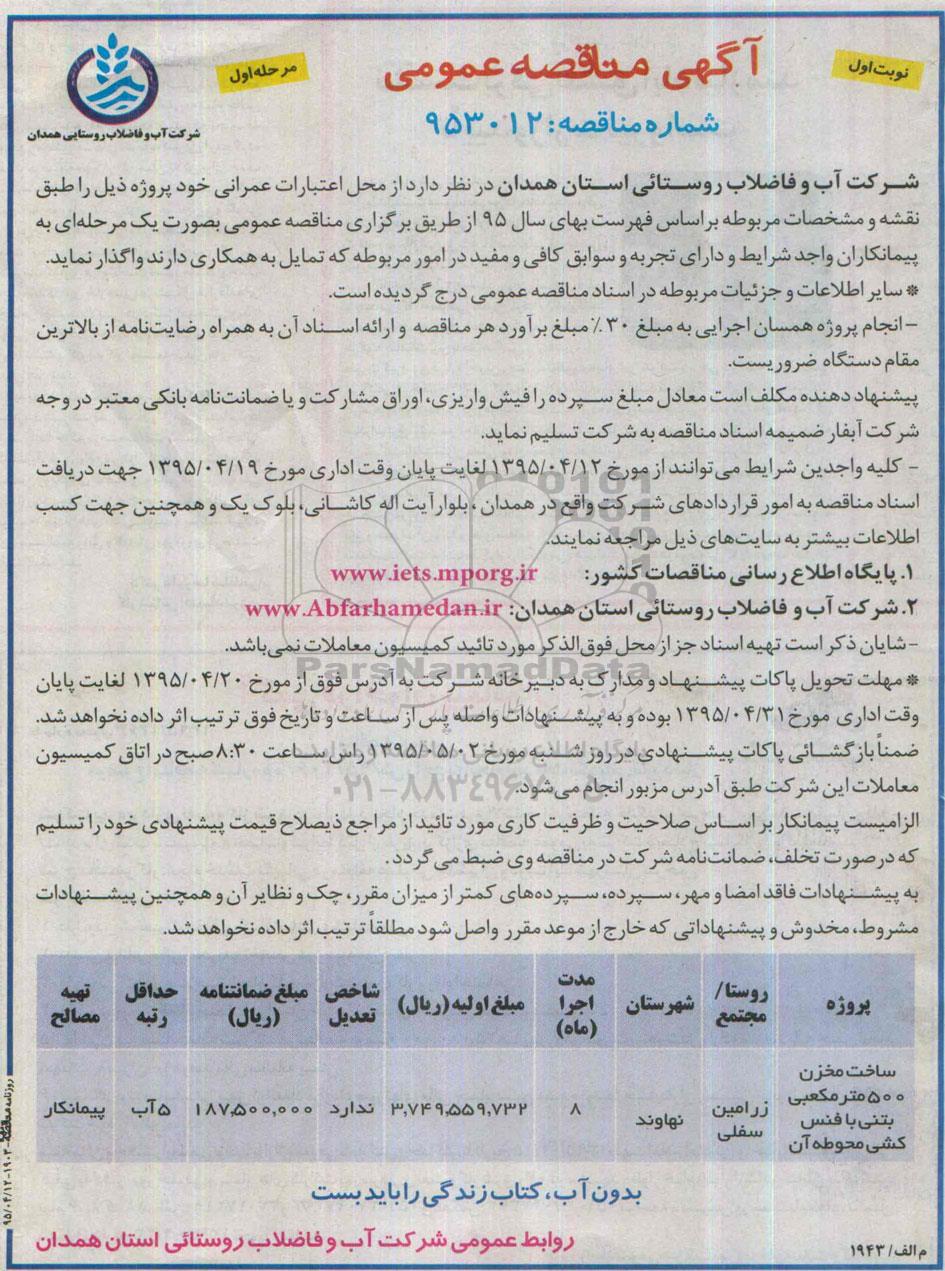 نوبت اول
آگهی مناقصه عمومی
مرحله اول
شماره مناقصه: ۹۵۳۰۱۲
شرکت آب و فاضلاب روستایی همدان
شرکت آب و فاضلاب روستائی استان همدان در نظر دارد از محل اعتبارات عمرانی خود پروژه ذیل را طبق
نقشه و مشخصات مربوطه براساس فهرست بهای سال ۹۵ از طریق برگزاری مناقصه عمومی بصورت یک مرحله‌ای به
پیمانکاران واجد شرایط و دارای تجربه و سوابق کافی و مفید در امور مربوطه که تمایل به همکاری دارند واگذار نماید.
* سایر اطلاعات و جزئیات مربوطه در اسناد مناقصه عمومی درج گردیده است.
- انجام پروژه همسان اجرایی به مبلغ ۳۰٪ مبلغ برآورد هر مناقصه و ارائه اسناد آن به همراه رضایت‌نامه از بالاترین
مقام دستگاه ضروریست.
پیشنهاد دهنده مکلف است معادل مبلغ سپرده را فیش واریزی، اوراق مشارکت و یا ضمانت‌نامه بانکی معتبر در وجه
شرکت آبفار ضمیمه اسناد مناقصه به شرکت تسلیم نماید.
- کلیه واجدین شرایط می‌توانند از مورخ ۱۳۹۵/۰۴/۱۲ لغایت پایان وقت اداری مورخ ۱۳۹۵/۰۴/۱۹ جهت دریافت
اسناد مناقصه به امور قراردادهای شرکت واقع در همدان، بلوار آیت اله کاشانی، بلوک یک و همچنین جهت کسب
اطلاعات بیشتر به سایت‌های ذیل مراجعه نمایند.
۱. پایگاه اطلاع رسانی مناقصات کشور: www.iets.mporg.ir
۲. شرکت آب و فاضلاب روستائی استان همدان: www.Abfarhamedan.ir
- شایان ذکر است تهیه اسناد جز از محل فوق‌الذکر مورد تائید کمیسیون معاملات نمی‌باشد.
ParsNamadData
* مهلت تحویل پاکات پیشنهاد و مدارک به دبیرخانه شرکت به آدرس فوق از مورخ ۱۳۹۵/۰۴/۲۰ لغایت پایان
وقت اداری مورخ ۱۳۹۵/۰۴/۳۱ بوده و به پیشنهادات واصله پس از ساعت و تاریخ فوق ترتیب اثر داده نخواهد شد.
ضمناً بازگشائی پاکات پیشنهادی در روز شنبه مورخ ۱۳۹۵/۰۵/۰۲ راس ساعت ۸:۳۰ صبح در اتاق کمیسیون
معاملات این شرکت طبق آدرس مزبور انجام می‌شود.
۰۲۱-۸۸۳۴۹۶۷۰
الزامیست پیمانکار بر اساس صلاحیت و ظرفیت کاری مورد تائید از مراجع ذیصلاح قیمت پیشنهادی خود را تسلیم
که در صورت تخلف، ضمانت‌نامه شرکت در مناقصه وی ضبط می‌گردد.
به پیشنهادات فاقد امضا و مهر، سپرده، سپرده‌های کمتر از میزان مقرر، چک و نظایر آن و همچنین پیشنهادات
مشروط، مخدوش و پیشنهاداتی که خارج از موعد مقرر واصل شود مطلقاً ترتیب اثر داده نخواهد شد.
پروژه | روستا/ مجتمع | شهرستان | مدت اجرا (ماه) | مبلغ اولیه (ریال) | شاخص تعدیل | مبلغ ضمانتنامه (ریال) | حداقل رتبه | تهیه مصالح
ساخت مخزن ۵۰۰ متر مکعبی بتنی با فنس کشی محوطه آن | زرامین سفلی | نهاوند | ۸ | ۳,۷۴۹,۵۵۹,۷۳۲ | ندارد | ۱۸۷,۵۰۰,۰۰۰ | ۵ آب | پیمانکار
بدون آب، کتاب زندگی را باید بست
روابط عمومی شرکت آب و فاضلاب روستائی استان همدان
م الف/ ۱۹۴۳